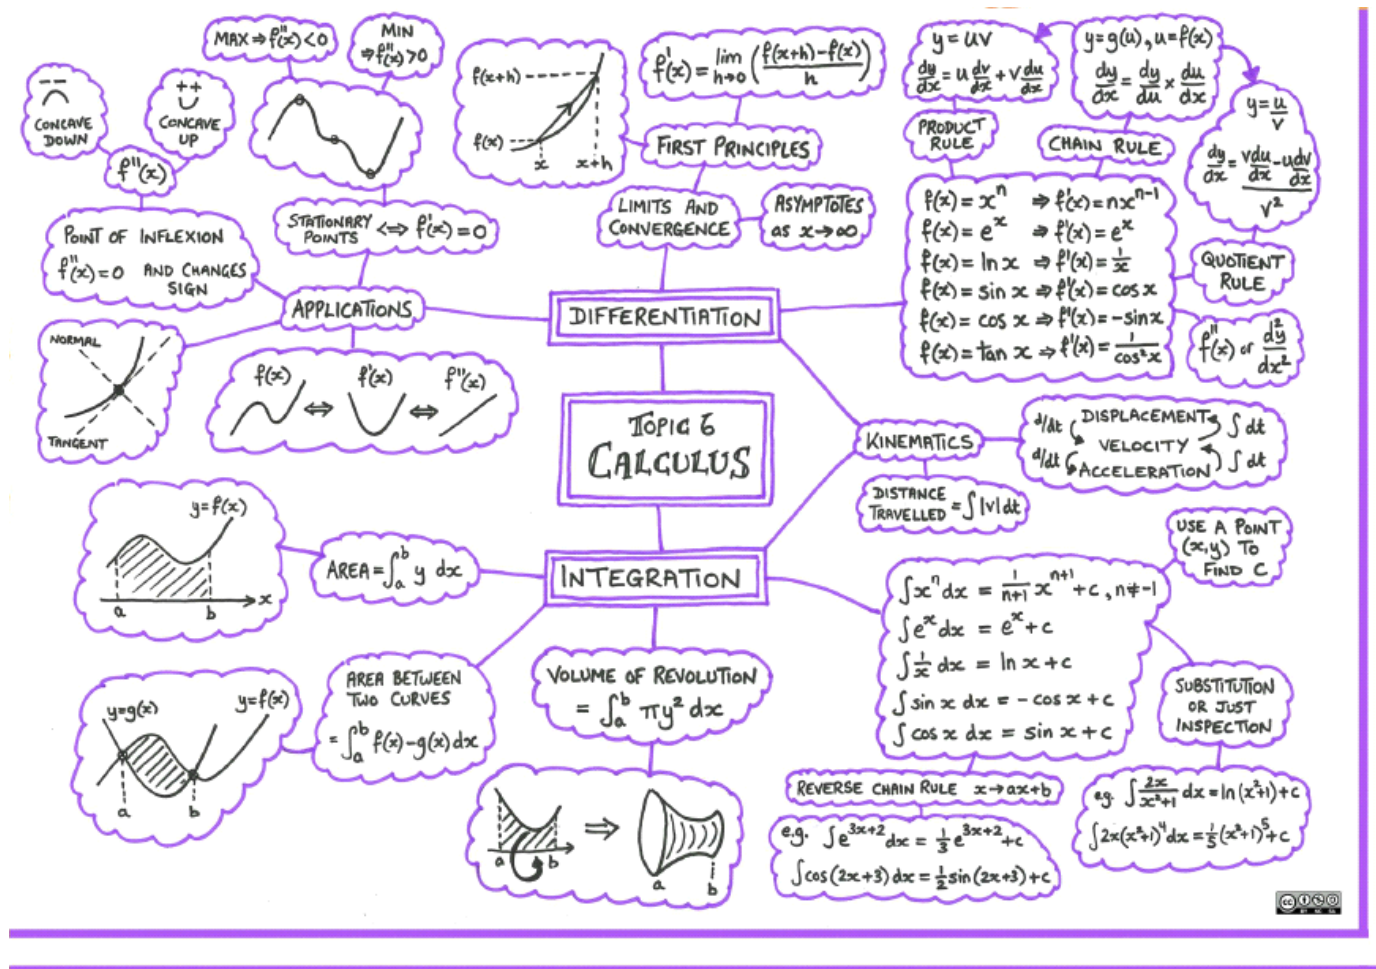 MAX ⇒ f''(x) < 0
MIN
⇒ f''(x) > 0
--
CONCAVE
DOWN
++
CONCAVE
UP
f''(x)
POINT OF INFLEXION
f''(x) = 0 AND CHANGES
SIGN
STATIONARY
POINTS ⇔ f'(x) = 0
APPLICATIONS
NORMAL
TANGENT
f(x) ⇔ f'(x) ⇔ f''(x)
f(x+h)
f(x)
x
x+h
f'(x) = lim h→0 (f(x+h)-f(x)/h)
FIRST PRINCIPLES
LIMITS AND
CONVERGENCE
ASYMPTOTES
as x→∞
DIFFERENTIATION
y = uv
dy/dx = u dv/dx + v du/dx
PRODUCT
RULE
y = g(u), u = f(x)
dy/dx = dy/du × du/dx
CHAIN RULE
y = u/v
dy/dx = (v du/dx - u dv/dx)/v²
QUOTIENT
RULE
f(x) = xⁿ ⇒ f'(x) = nxⁿ⁻¹
f(x) = eˣ ⇒ f'(x) = eˣ
f(x) = ln x ⇒ f'(x) = 1/x
f(x) = sin x ⇒ f'(x) = cos x
f(x) = cos x ⇒ f'(x) = -sin x
f(x) = tan x ⇒ f'(x) = 1/cos²x
f''(x) or d²y/dx²
TOPIC 6
CALCULUS
KINEMATICS
d/dt DISPLACEMENT ∫ dt
VELOCITY
d/dt ACCELERATION ∫ dt
DISTANCE
TRAVELLED = ∫|v|dt
INTEGRATION
AREA = ∫ₐᵇ y dx
y = f(x)
a
b
x
AREA BETWEEN
TWO CURVES
= ∫ₐᵇ f(x)-g(x) dx
y=g(x)
y=f(x)
a
b
VOLUME OF REVOLUTION
= ∫ₐᵇ πy² dx
a
b
⇒
a
b
∫xⁿ dx = 1/(n+1) xⁿ⁺¹ + c, n≠-1
∫eˣ dx = eˣ + c
∫1/x dx = ln x + c
∫sin x dx = - cos x + c
∫cos x dx = sin x + c
USE A POINT
(x,y) TO
FIND C
SUBSTITUTION
OR JUST
INSPECTION
e.g. ∫2x/(x²+1) dx = ln(x²+1)+c
∫2x(x²+1)⁴ dx = 1/5(x²+1)⁵+c
REVERSE CHAIN RULE x→ax+b
e.g. ∫e³ˣ⁺² dx = 1/3 e³ˣ⁺² + c
∫cos(2x+3) dx = 1/2 sin(2x+3) + c
cc